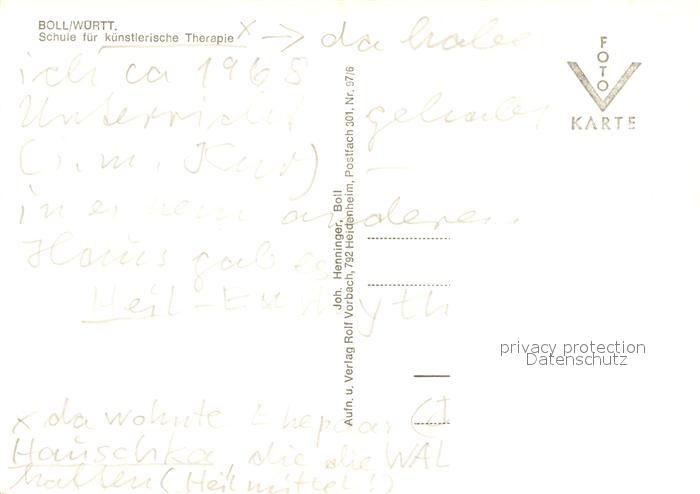 BOLL/WÜRTT.
Schule für künstlerische Therapie x → da habe
ich ca 1968
Unterricht gehabt
(i. m. Kur) –
in einem anderen
Haus gab es
Heil-Eurhyth
x da wohnte Ehepaar
Hauschka, die die WAL
hatten (Heilmittel!)
Joh. Henninger, Boll
Aufn. u. Verlag Rolf Vorbach, 792 Heidenheim, Postfach 301, Nr. 97/6
FOTO
KARTE
privacy protection
Datenschutz